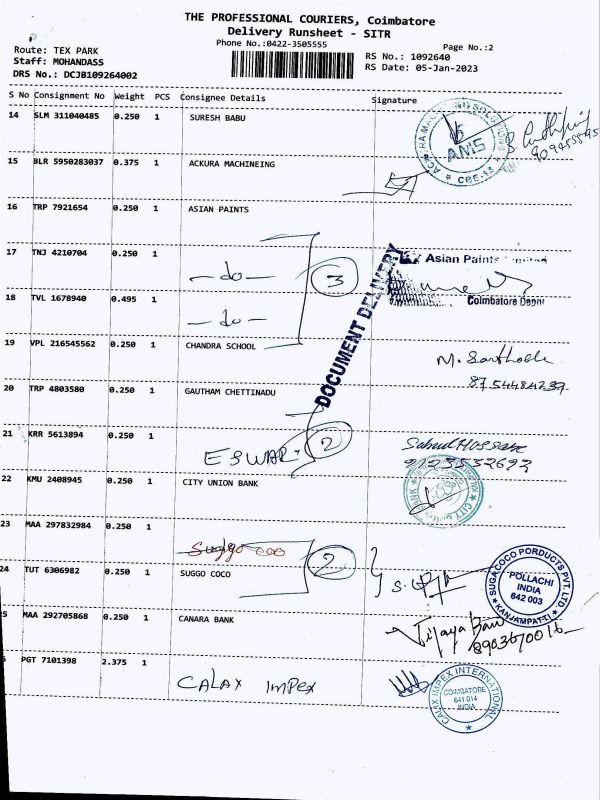 THE PROFESSIONAL COURIERS, Coimbatore
Delivery Runsheet - SITR
Phone No.:0422-3505555
Page No.:2
Route: TEX PARK
Staff: MOHANDASS
DRS No.: DCJB109264002
RS No.: 1092640
RS Date: 05-Jan-2023
S No Consignment No Weight PCS Consignee Details Signature
14 SLM 311040485 0.250 1 SURESH BABU
AMS
CBE-14
15 BLR 5950283037 0.375 1 ACKURA MACHINEING
16 TRP 7921654 0.250 1 ASIAN PAINTS
17 TNJ 4210704 0.250 1 -do-
3
DOCUMENT DELIVERY
Asian Paints Limited
Coimbatore Depot
18 TVL 1678940 0.495 1 -do-
19 VPL 216545562 0.250 1 CHANDRA SCHOOL
M.
20 TRP 4803580 0.250 1 GAUTHAM CHETTINADU
21 KRR 5613894 0.250 1 ESWARI
2
9123532692
22 KMU 2408945 0.250 1 CITY UNION BANK
23 MAA 297832984 0.250 1
24 TUT 6306982 0.250 1 SUGGO COCO
2
SUGACOCO PORDUCTS PVT. LTD
POLLACHI
INDIA
642 003
KANJAMPATTI
5 MAA 292705868 0.250 1 CANARA BANK
Vijaya
8903670016
PGT 7101398 2.375 1 CALAX IMPEX
CALAX IMPEX INTERNATIONAL
COIMBATORE
641 014
INDIA